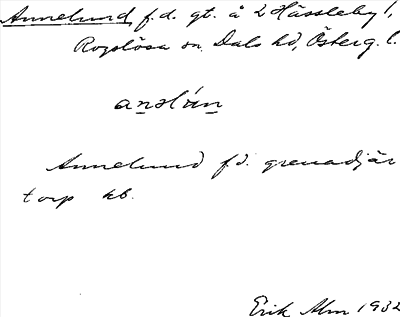 Annelund f.d. gt. å 2 Hässleby 1,
Rogslösa sn. Dals hd, Österg. l.
anəlún
Annelund f.d. grenadjär
torp kb.
Erik Alm 1932